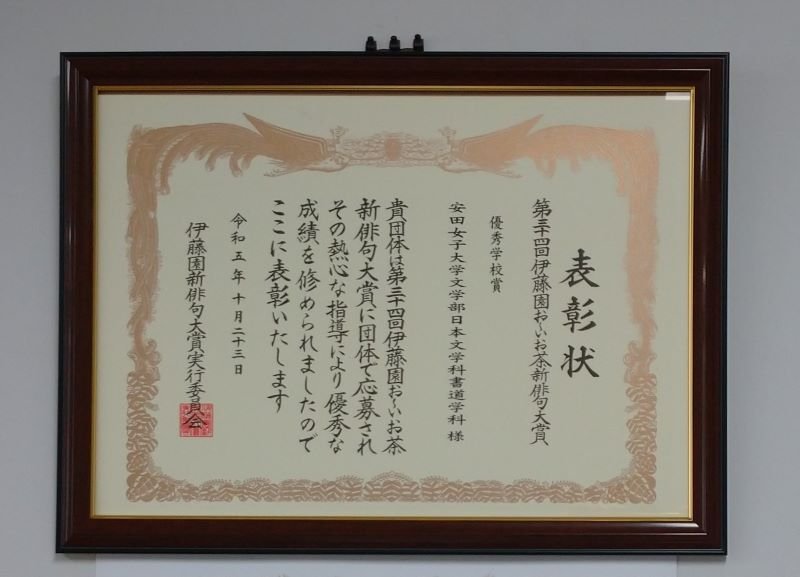 表彰状
第三十四回伊藤園お〜いお茶新俳句大賞
優秀学校賞
安田女子大学文学部日本文学科書道学科 様
貴団体は第三十四回伊藤園お〜いお茶
新俳句大賞に団体で応募され
その熱心な指導により優秀な
成績を修められましたので
ここに表彰いたします
令和五年十月二十三日
伊藤園新俳句大賞実行委員会